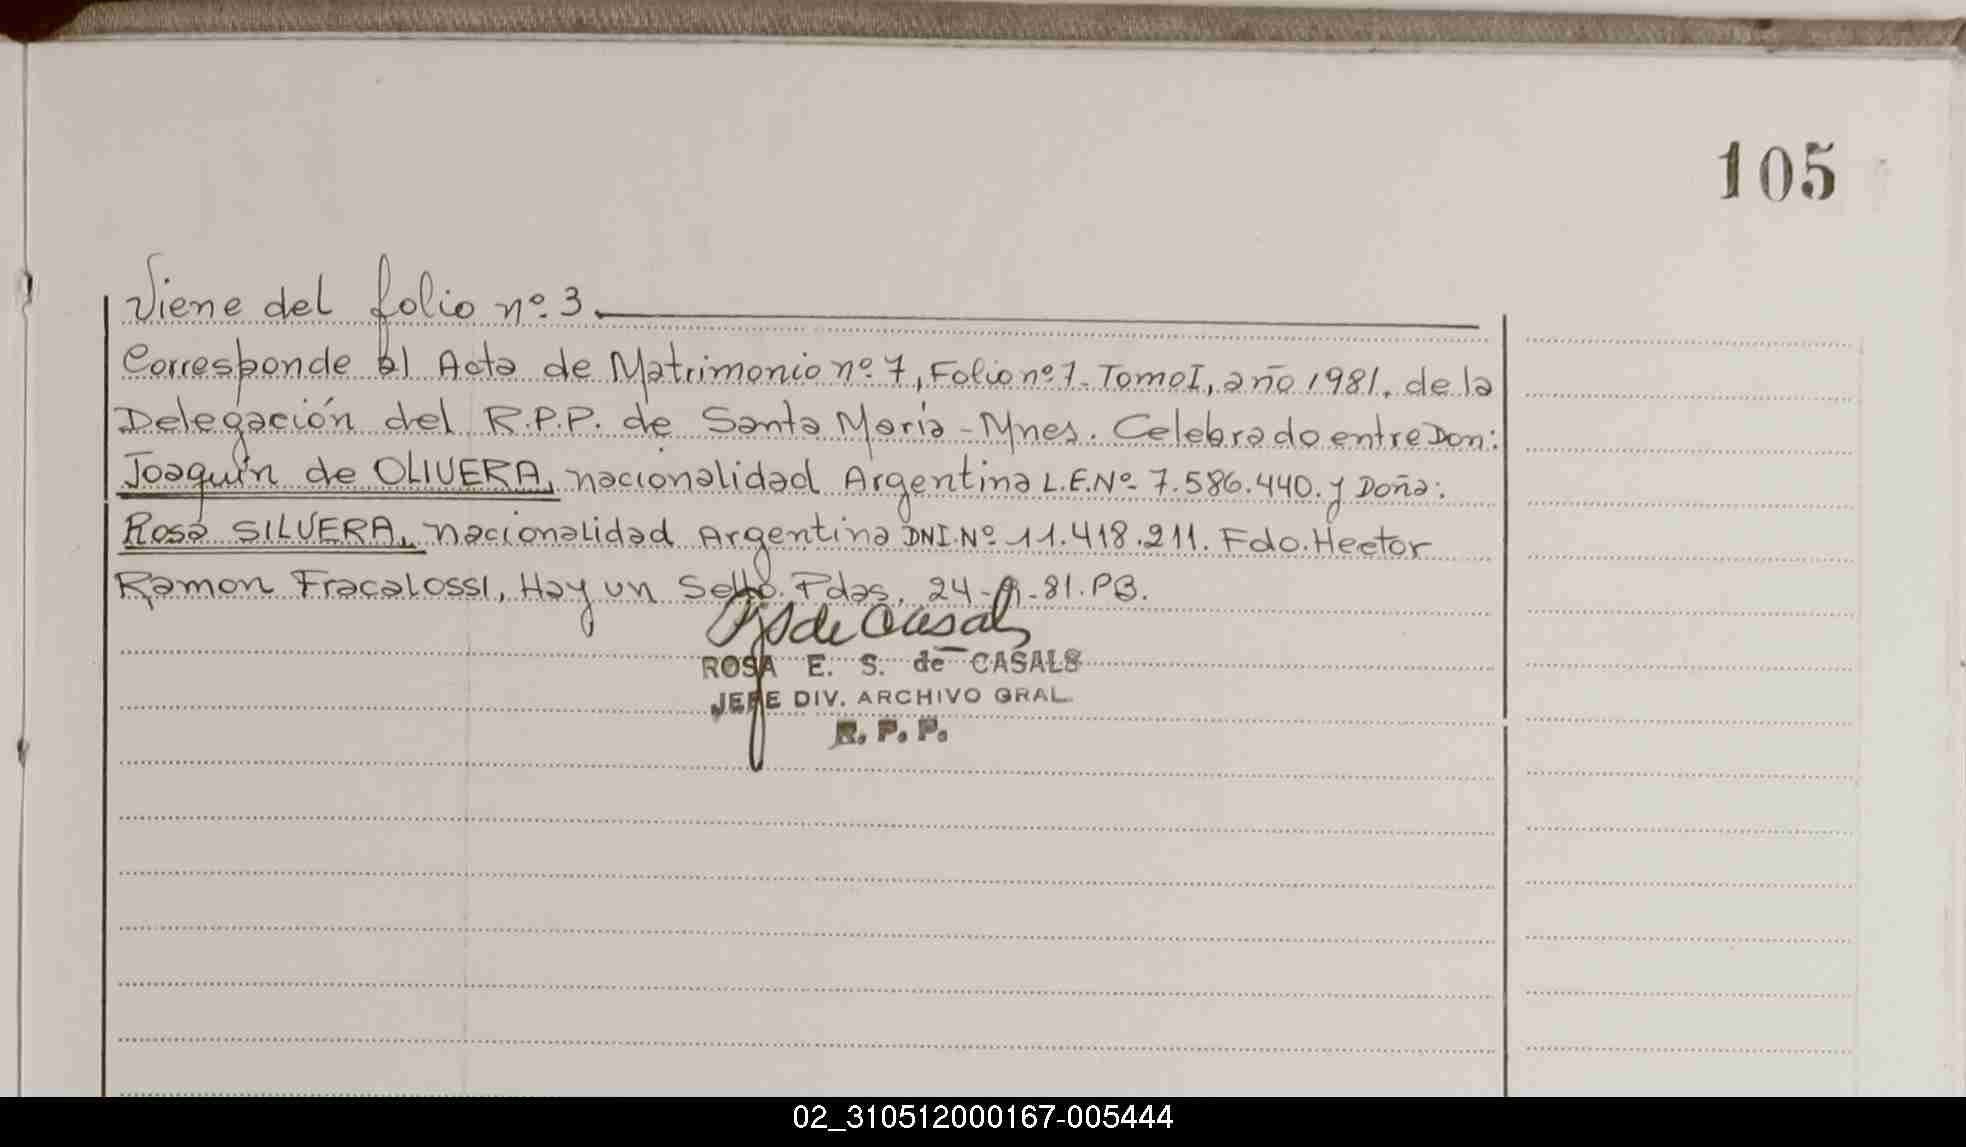 105
Viene del folio nº 3.
Corresponde al Acta de Matrimonio nº 7, Folio nº 7. Tomo I, año 1981. de la
Delegación del R.P.P. de Santa María - Mnes. Celebrado entre Don:
Joaquín de OLIVERA, nacionalidad Argentina L.E.Nº 7.586.440. y Doña:
Rosa SILVERA, nacionalidad Argentina DNI.Nº 11.418.211. Fdo. Hector
Ramon Fracalossi, Hay un Sello. Pdas, 24- -81. PB.
de Casals
ROSA E. S. de CASALS
JEFE DIV. ARCHIVO GRAL.
R. P. P.
02_310512000167-005444